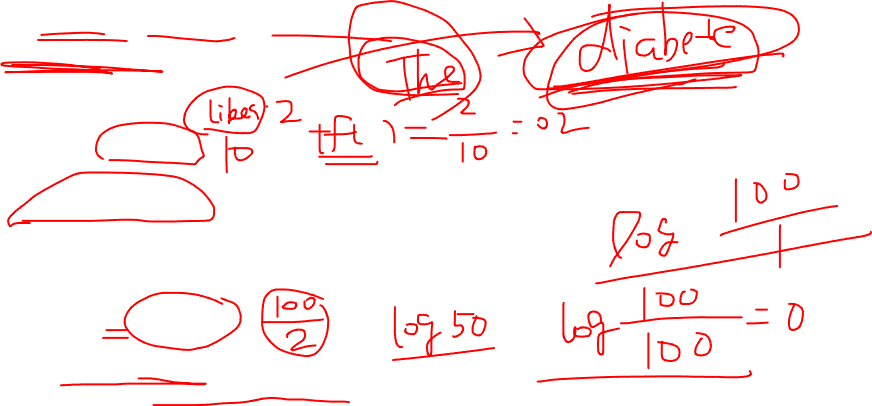 The diabetic
likes 2
10
tf( ) = 2/10 = 0.2
log 100/1
= 100/2 log 50 log 100/100 = 0